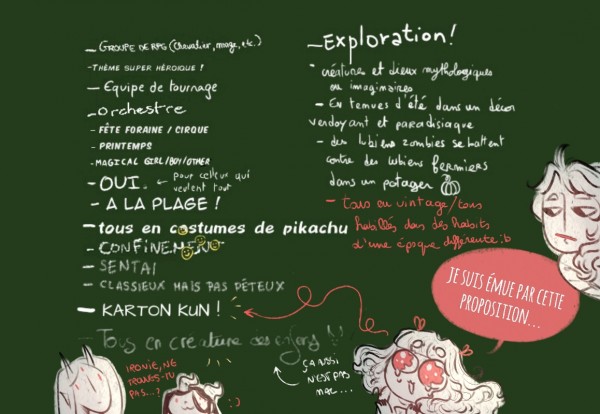 - GROUPE DE RPG (Chevalier, mage, etc.)
- THÈME SUPER HÉROIQUE !
- Equipe de tournage
- orchestre
- FÊTE FORAINE / CIRQUE
- PRINTEMPS
- MAGICAL GIRL/BOY/OTHER
- OUI. ← pour celleux qui
veulent tout
- A LA PLAGE !
- tous en costumes de pikachu
- CONFINEMENT
- SENTAI
- CLASSIEUX MAIS PAS PÉTEUX
- KARTON KUN !
- Tous en créature des enfers
IRONIE, NE
TROUVES-TU
PAS...?
:)
ÇA AUSSI
N'EST PAS
MAL...
- Exploration !
- créatures et dieux mythologiques
ou imaginaires
- En tenues d'été dans un décor
verdoyant et paradisiaque
- des lubiens zombies se battent
contre des lubiens fermiers
dans un potager
- tous en vintage / tous
habillés dans des habits
d'une époque différente :b
JE SUIS ÉMUE PAR CETTE
PROPOSITION...